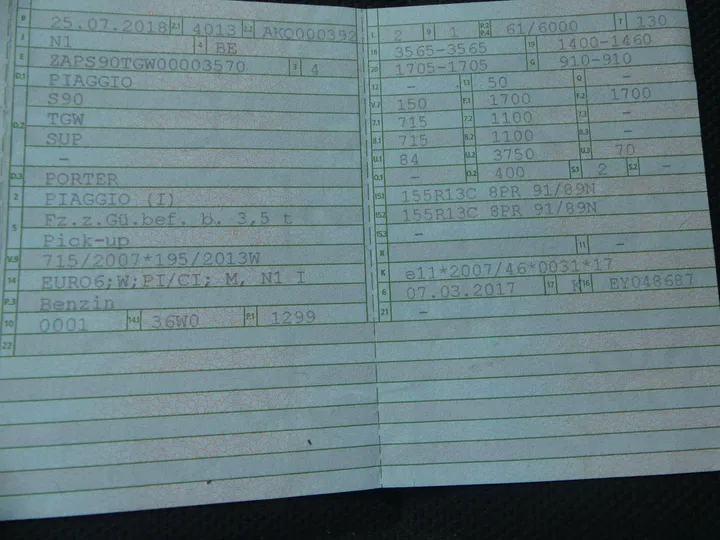 B 25.07.2018 2.1 4013 2.2 AKO000392
J N1 4 BE
E ZAPS90TGW00003570 3 4
D.1 PIAGGIO
S90
D.2 TGW
SUP
-
D.3 PORTER
2 PIAGGIO (I)
5 Fz.z.Gü.bef. b. 3,5 t
Pick-up
V.9 715/2007*195/2013W
14 EURO6;W;PI/CI; M, N1 I
P.3 Benzin
10 0001 14.1 36W0 P.1 1299
22
L 2 9 1 P.2 P.4 61/6000 T 130
18 3565-3565 19 1400-1460
20 1705-1705 G 910-910
12 - 13 50 Q -
V.7 150 F.1 1700 F.2 1700
7.1 715 7.2 1100 7.3 -
8.1 715 8.2 1100 8.3 -
U.1 84 U.2 3750 U.3 70
O.1 - O.2 400 S.1 2 S.2 -
15.1 155R13C 8PR 91/89N
15.2 155R13C 8PR 91/89N
15.3 -
R 11 -
K e11*2007/46*0031*17
6 07.03.2017 17 K 16 EY048687
21 -